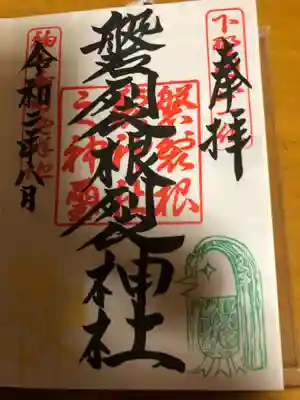 奉拝
磐裂根裂神社
磐裂根
裂神社
之神璽
令和二年八月